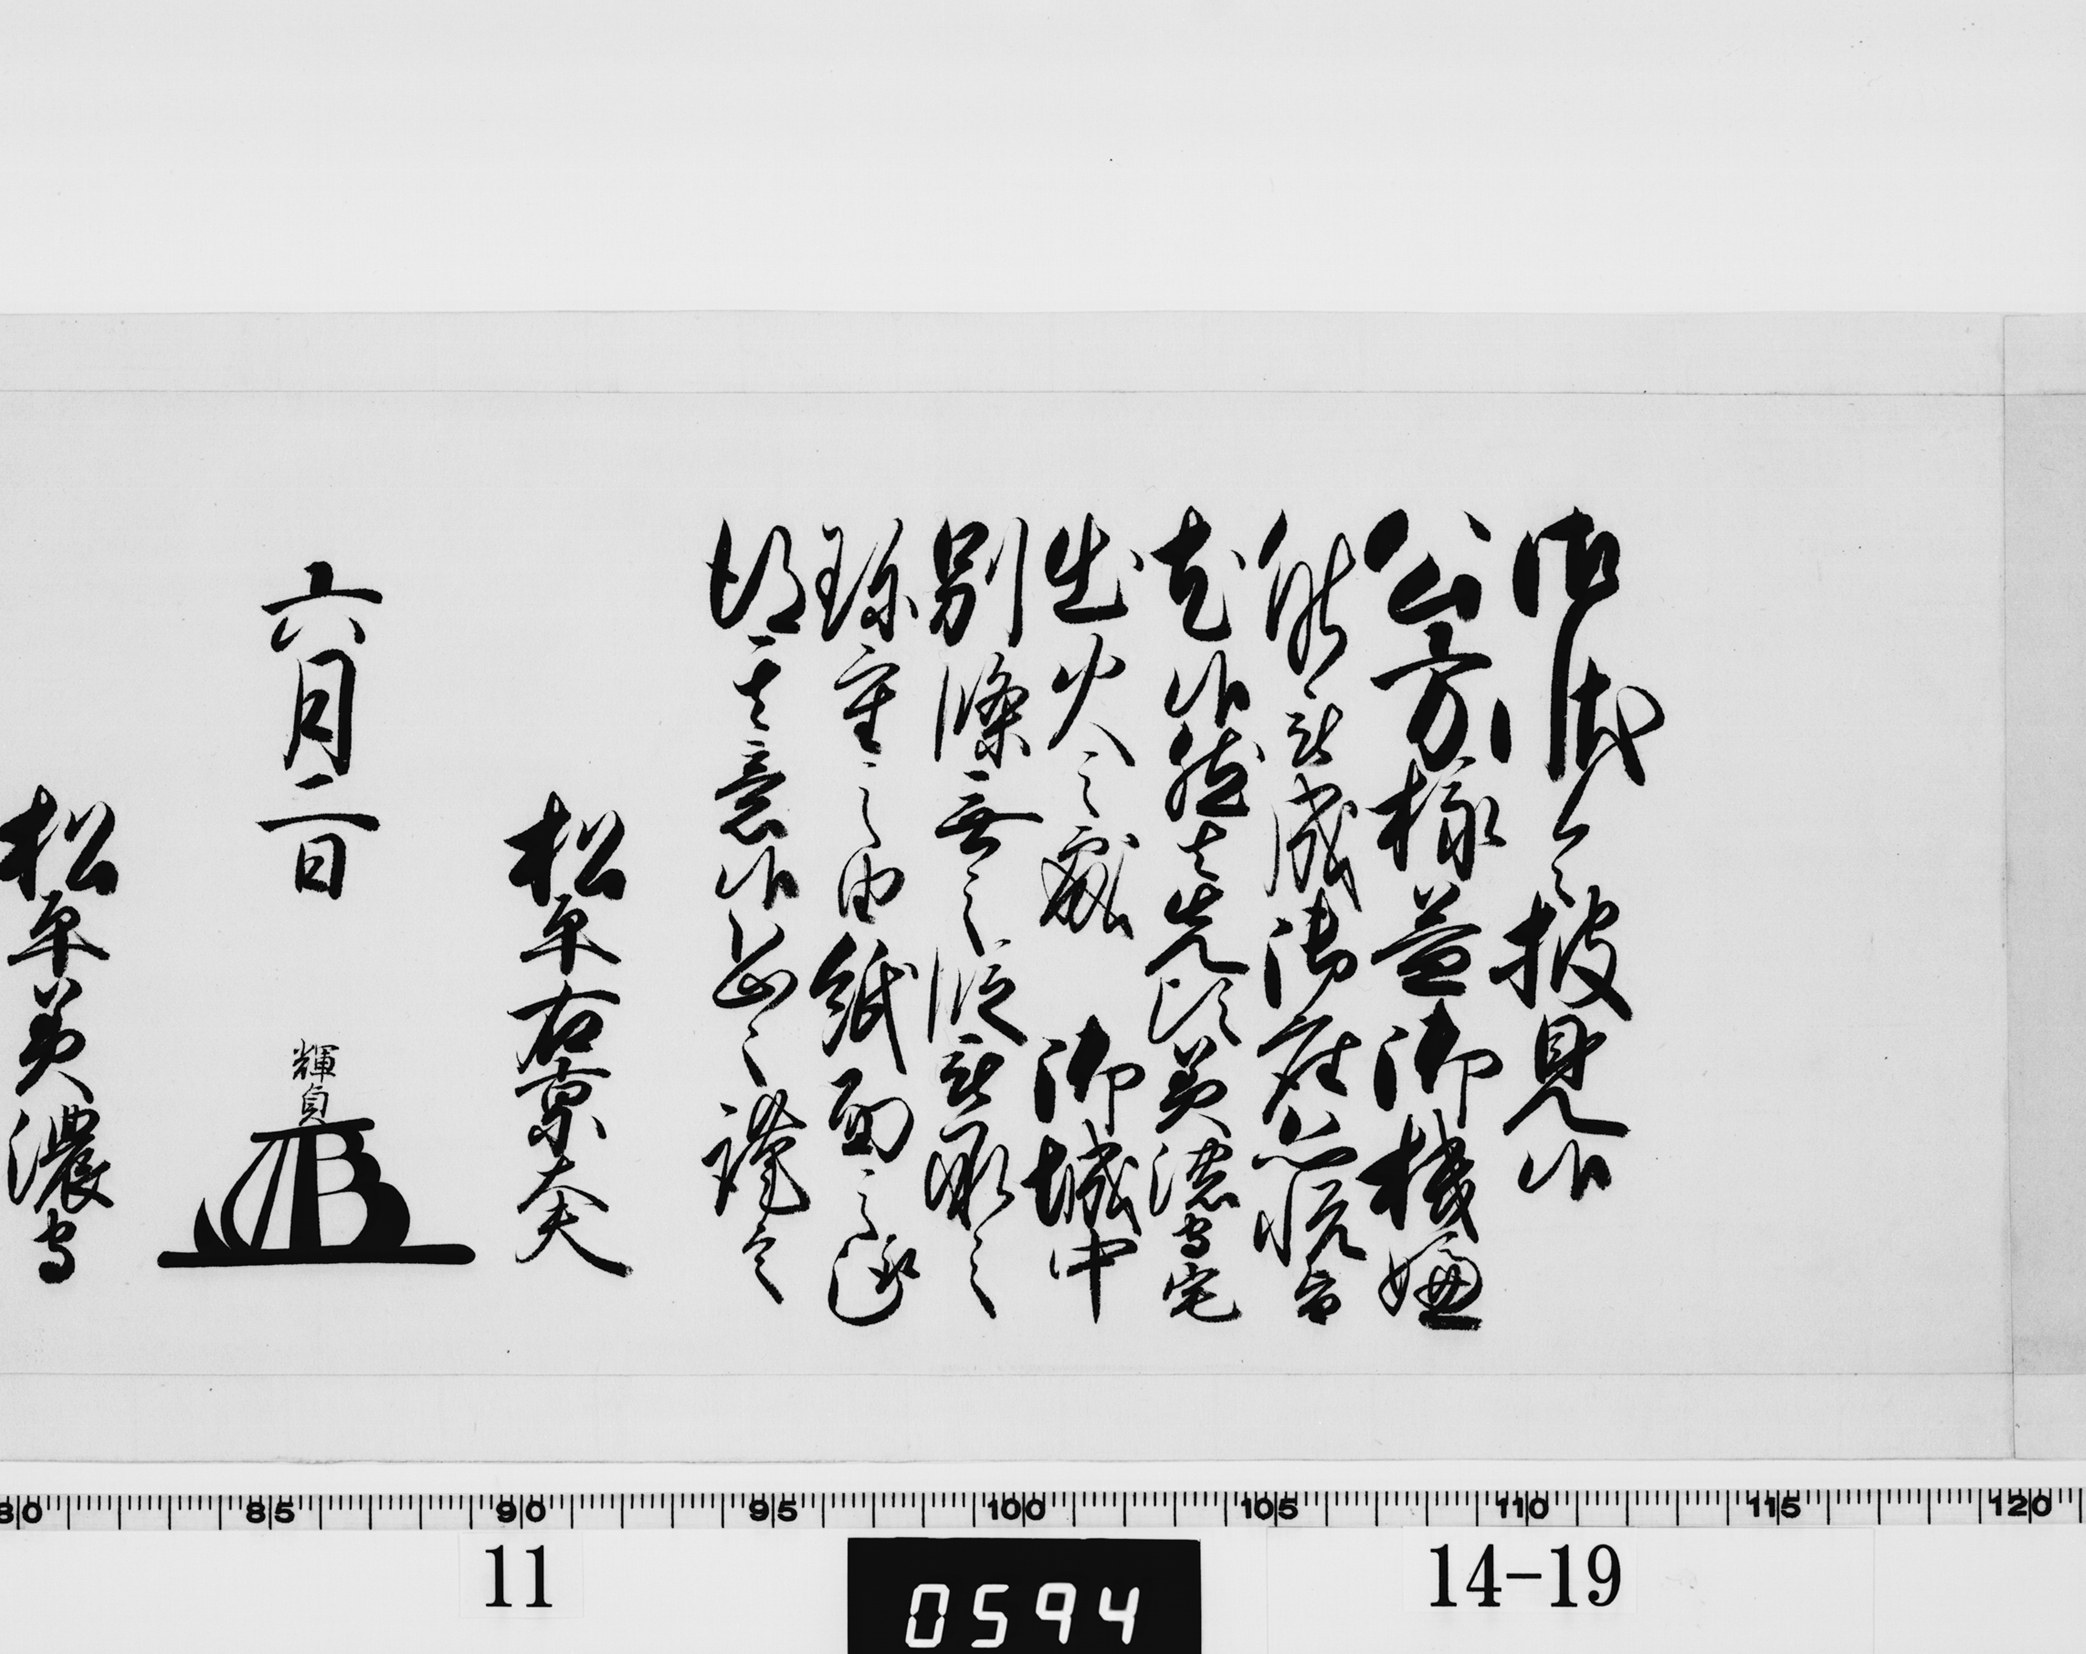 御状令披見候
公方様益御機嫌
能被成御座恐悦旨
尤候然者先頃美濃守宅
出火之處 御城中
別條無之段被承之
珍重之由紙面之趣
得其意候恐々謹言
松平右京大夫
六月二日
輝貞
松平美濃守
80 85 90 95 100 105 110 115 120
11
0594
14-19